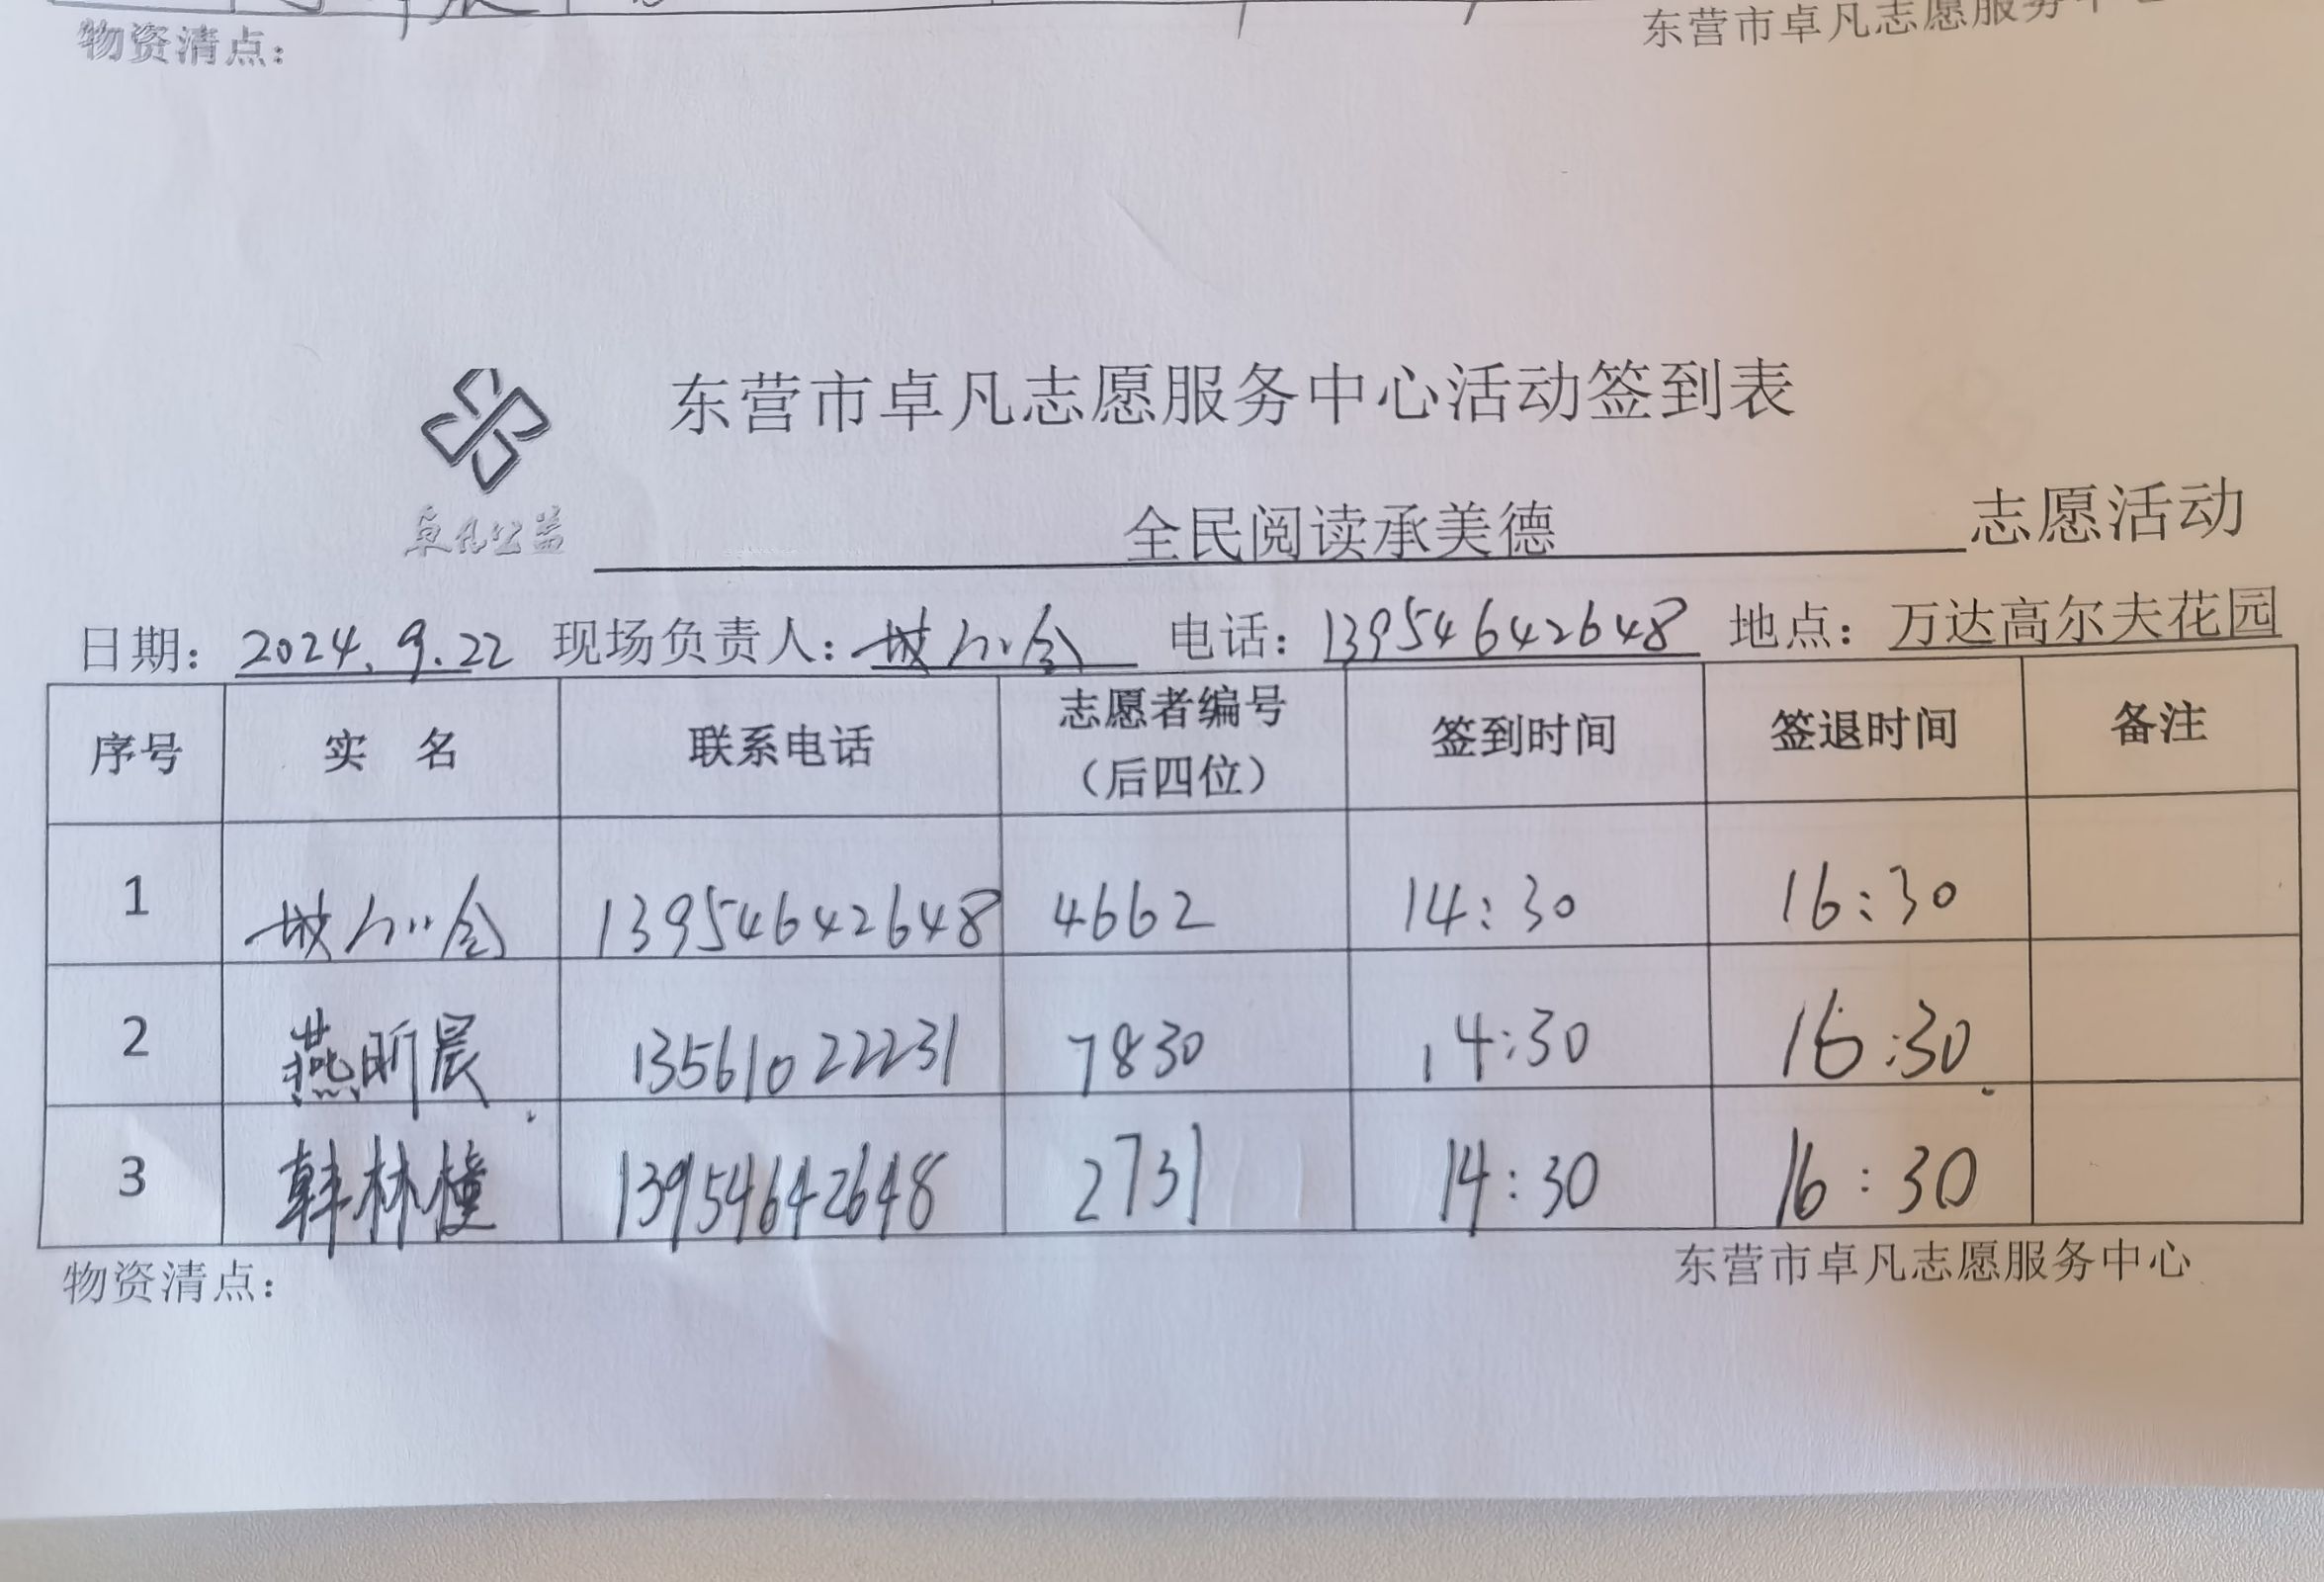 物资清点：
东营市卓凡志愿服务中心
东营市卓凡志愿服务中心活动签到表
卓凡公益
全民阅读承美德 志愿活动
日期：2024.9.22 现场负责人： 电话：13954642648 地点：万达高尔夫花园
序号 实 名 联系电话 志愿者编号（后四位） 签到时间 签退时间 备注
1 13954642648 4662 14:30 16:30
2 燕昕晨 13561022231 7830 14:30 16:30
3 韩林橦 13954642648 2731 14:30 16:30
物资清点：
东营市卓凡志愿服务中心